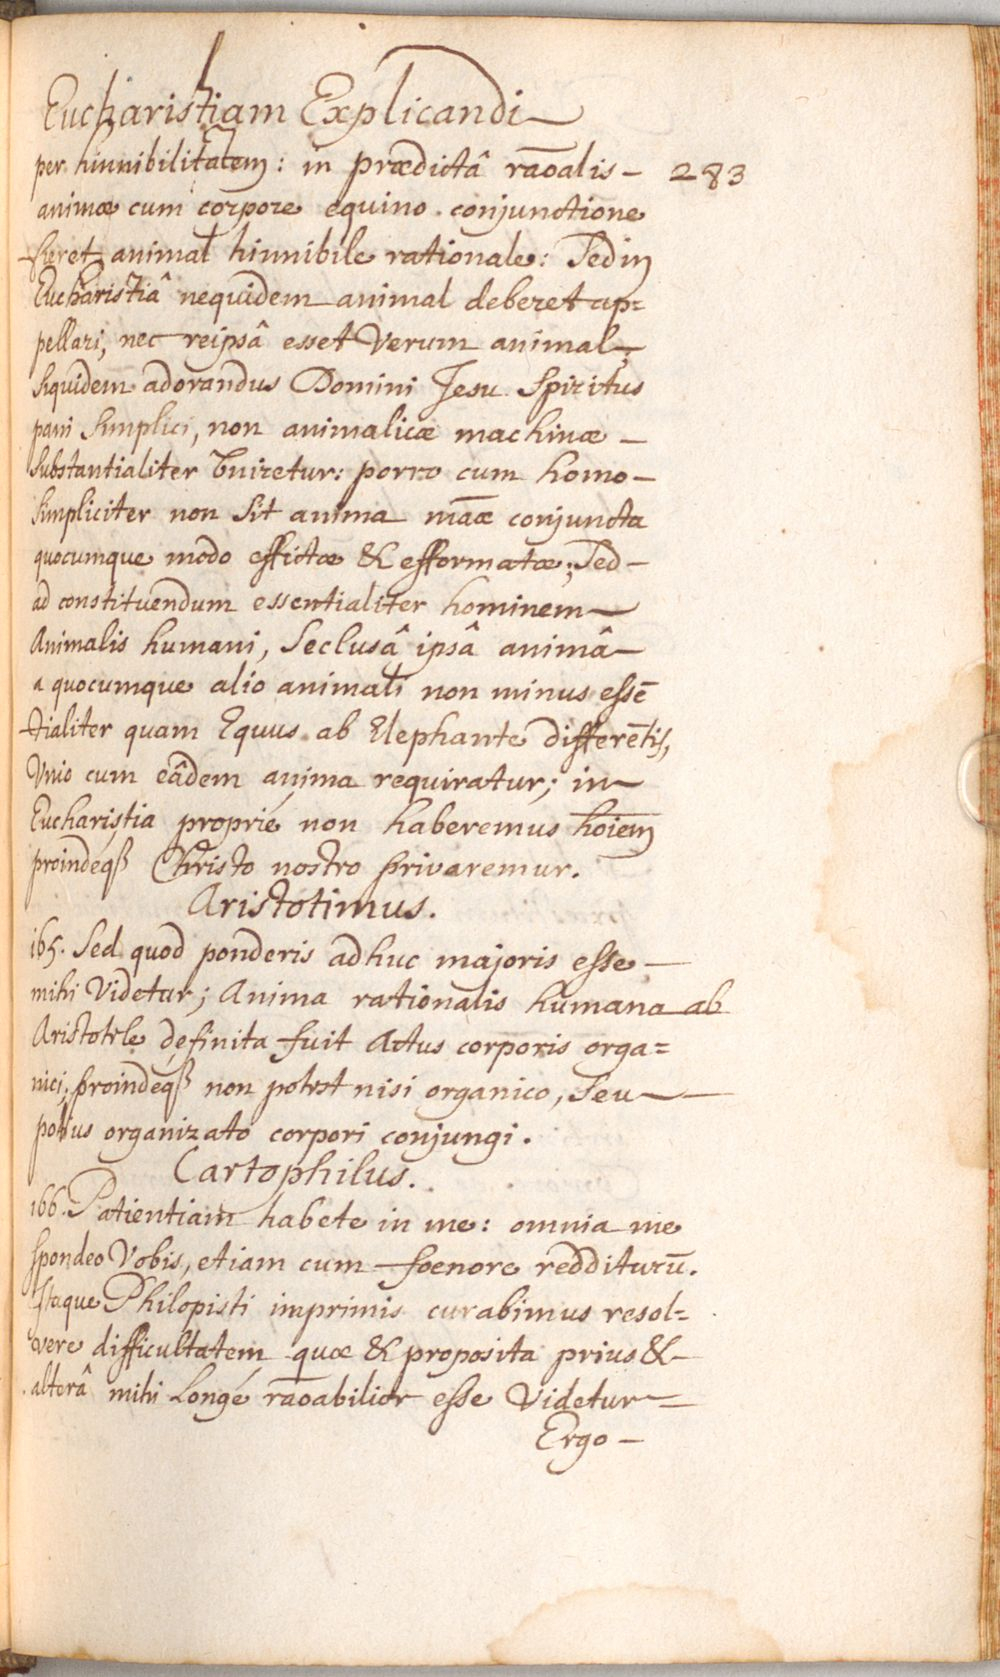 Eucharistiam Explicandi
per hinnibilitatem: in prædictâ rāoalis 283
animæ cum corpore equino conjunctione
fieret animal hinnibile rationale: Sed in
Eucharistiâ nequidem animal deberet ap=
pellari, nec reipsâ esset Verum animal;
Siquidem adorandus Domini Jesu Spiritus
pani Simplici, non animalicæ machinæ
Substantialiter Vniretur: porro cum homo
Simpliciter non Sit anima māæ conjuncta
quocumque modo effictæ & efformatæ; Sed
ad constituendum essentialiter hominem
Animalis humani, Seclusâ ipsâ animâ
a quocumque alio animali non minus essē
tialiter quam Equus ab Elephante differētis,
Vnio cum eâdem anima requiratur; in
Eucharistia proprié non haberemus hōiem
proindeqß Christo nostro privaremur.
Aristotimus.
165. Sed quod ponderis adhuc majoris esse
mihi Videtur; Anima rationalis humana ab
Aristotele definita fuit Actus corporis orga=
nici; proindeqß non potest nisi organico, Seu
potius organizato corpori conjungi.
Cartophilus.
166. Patientiam habete in me: omnia me
Spondeo Vobis, etiam cum foenore redditurū.
Itaque Philopisti imprimis curabimus resol=
vere difficultatem quæ & proposita prius &
alterâ mihi Longé rāoabilior esse Videtur
Ergo